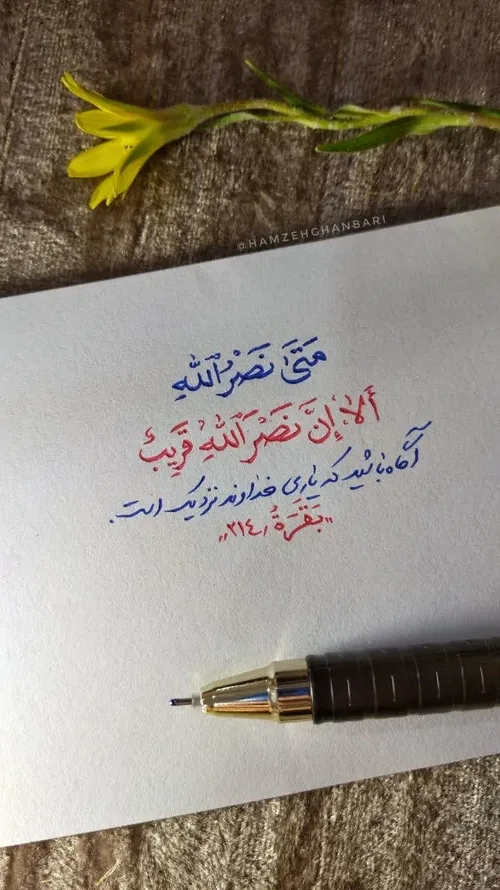 @HAMZEHGHANBARI
مَتَىٰ نَصْرُ ٱللَّهِ
أَلَا إِنَّ نَصْرَ ٱللَّهِ قَرِيبٌ
آگاه باشید که یاری خداوند نزدیک است.
"بَقَرَةُ، ٢١٤"